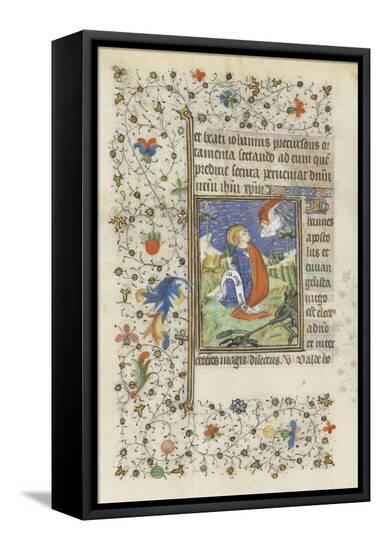 et beati iohannis precursoris or
tamenta sectando ad eum quē
predixit secura perueniat dnm
nrm ihm xpm
hannes
aposto
lus et
euuan
gelista
uirgo
est electus
a dno
et inter
ceteros magis dilectus V Valde ho